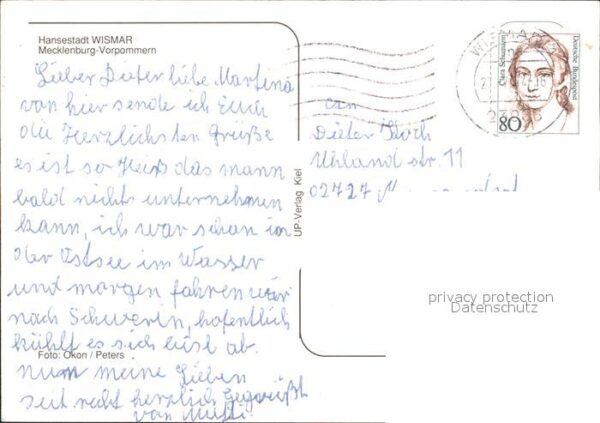 Hansestadt WISMAR
Mecklenburg-Vorpommern
Lieber Dieter liebe Martina
von hier sende ich Euch
die Herzlichsten Grüße
es ist so Heiß das mann
bald nichts unternehmen
kann, ich war schon in
der Ostsee im Wasser
und morgen fahren wir
nach Schwerin, hofentlich
kühlt es sich bis ab.
Foto: Okon / Peters
nun meine Lieben
seit recht herzlich Gegrüßt
von Mutti
UP-Verlag Kiel
WISMAR
Clara Schumann
Deutsche Bundespost
80
an
Dieter
Uhland str. 11
02727
privacy protection
Datenschutz